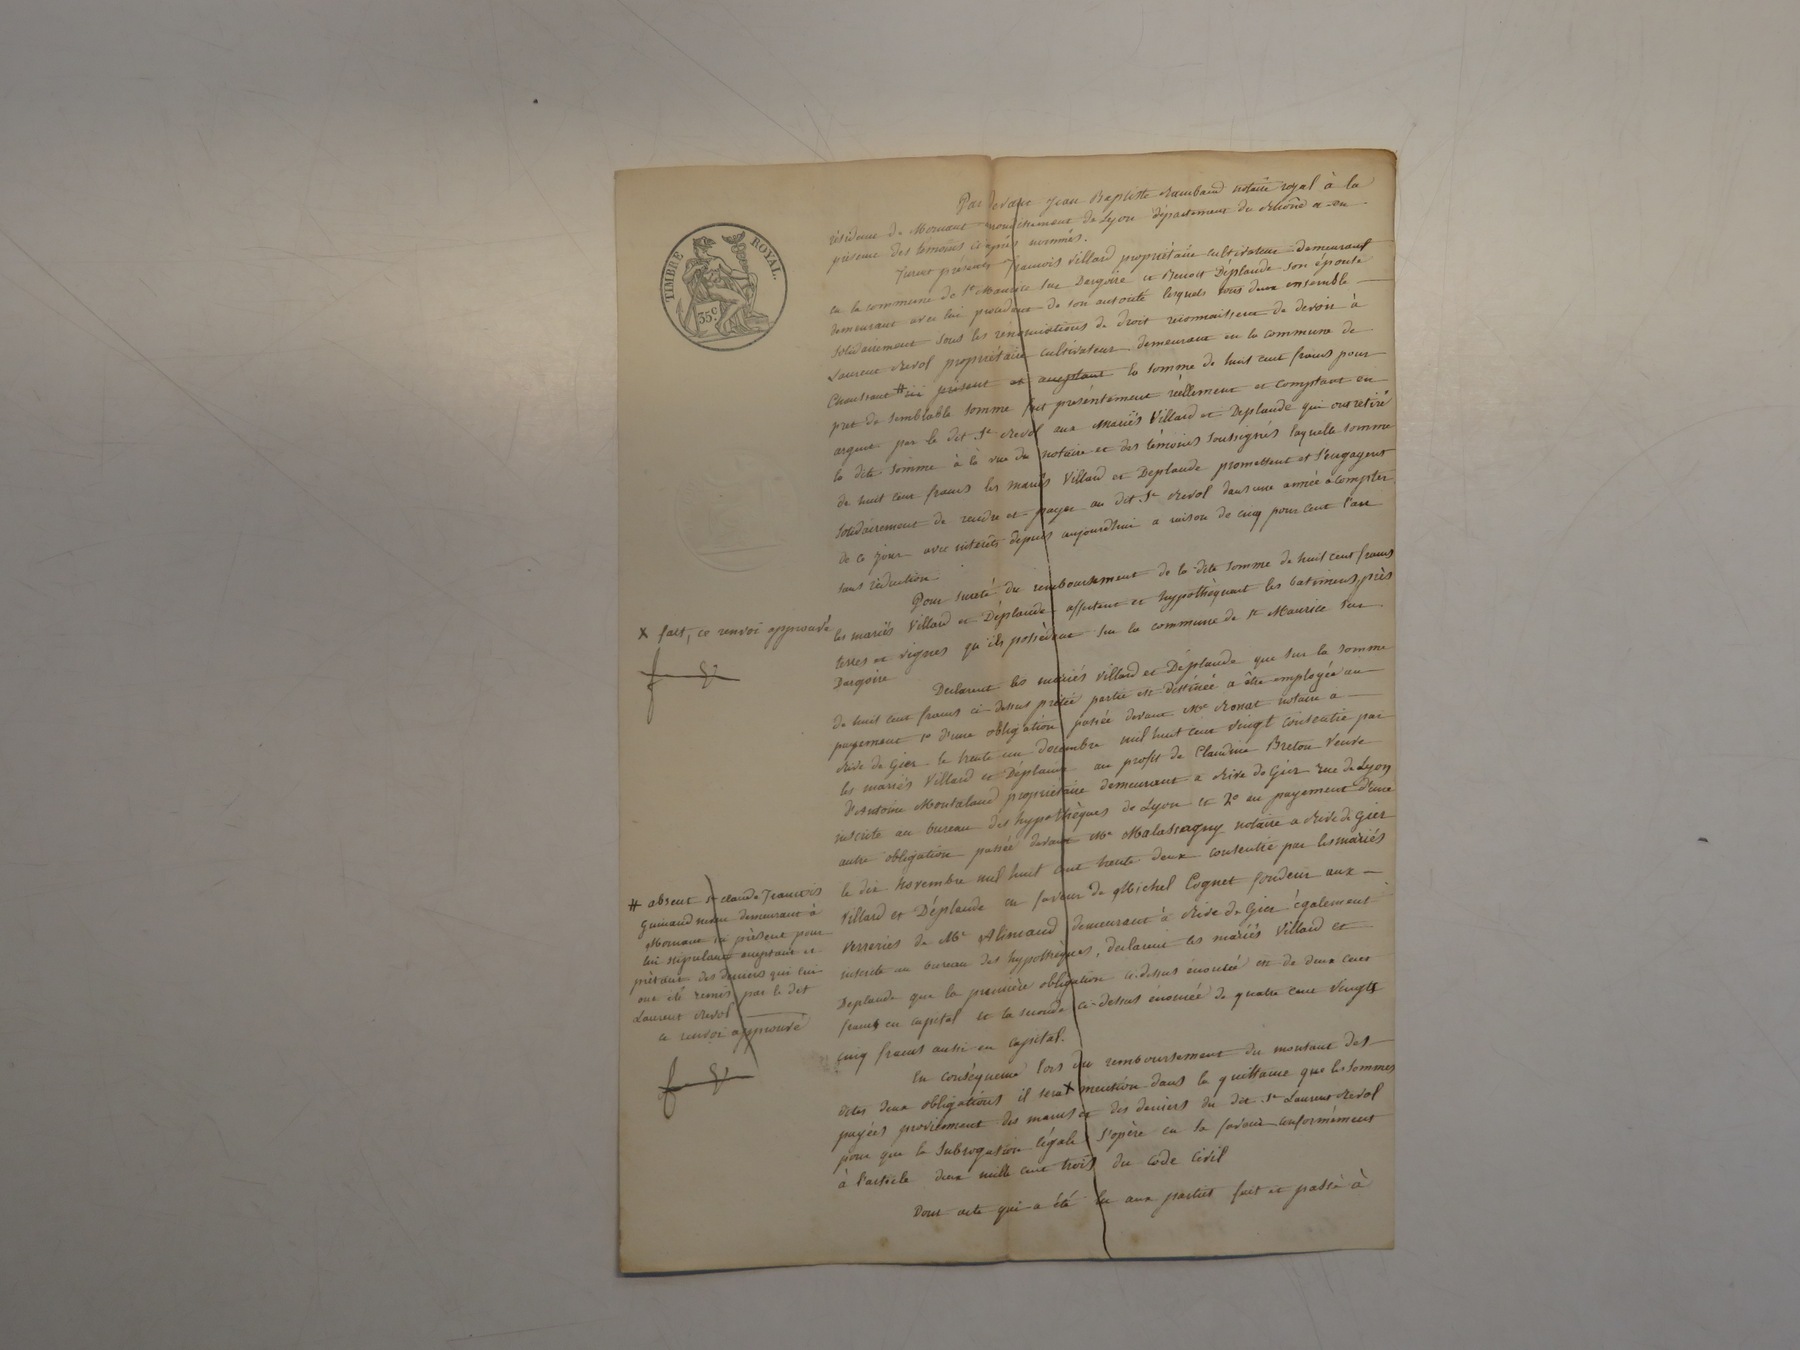 TIMBRE ROYAL.
35 c.
Par devant Jean Baptiste Rambaud notaire royal à la
résidence de Mornant arrondissement de Lyon département du Rhône & en
présence des témoins ci après nommés.
Furent présents François Villard propriétaire cultivateur demeurant
en la commune de St Maurice sur Dargoire et Benoit Déplaude son épouse
demeurant avec lui procédant de son autorité lesquels tous deux ensemble
solidairement sous les renonciations de droit reconnaissent de devoir à
Laurent Revol propriétaire cultivateur demeurant en la commune de
Chaussant # ici présent et acceptant la somme de huit cent francs pour
pret de semblable somme fait présentement réellement et comptant en
argent par le dit Sr Revol aux mariés Villard et Deplaude qui ont retiré
la dite somme à la vue du notaire et des témoins soussignés laquelle somme
de huit cent francs les mariés Villard et Deplaude promettent et s'engagent
solidairement de rendre et payer au dit Sr Revol dans une année à compter
de ce jour avec intérêts depuis aujourdhui a raison de cinq pour cent l'an
sans réduction.
Pour sureté du remboursement de la dite somme de huit cent francs
les mariés Villard et Déplaude affectent et hypothèquent les batimens, prés
terres et vignes qu'ils possèdent sur la commune de St Maurice sur
Dargoire
Declarent les mariés Villard et Déplaude que sur la somme
de huit cent francs ci-dessus prêtée partie est destinée a être employée au
payement 1o d'une obligation passée devant Me Ronat notaire a
Rive de Gier le trente un decembre mil huit cent vingt consentie par
les mariés Villard et Déplaude au profit de Claudine Breton veuve
d'Antoine Montaland propriétaire demeurant a Rive de Gier rue de Lyon
inscrite au bureau des hypothèques de Lyon et 2o au payement d'une
autre obligation passée devant Me Malassagny notaire a Rive de Gier
le dix novembre mil huit cent trente deux consentie par les mariés
Villard et Déplaude en faveur de Michel Cognet fondeur aux
verreries de Mr Alimand demeurant à Rive de Gier également
inscrite au bureau des hypothèques, declarent les mariés Villard et
Deplaude que la première obligation ci-dessus énoncée est de deux cent
francs en capital et la seconde ci-dessus énoncée de quatre cent vingt
cinq francs aussi en capital.
En conséquence lors du remboursement du montant des
dites deux obligations il sera x mention dans la quittance que les sommes
payées proviennent des mains et des deniers du dit Sr Laurent Revol
pour que la subrogation légale s'opère en sa faveur conformément
à l'article deux mille cent trois du code civil
Dont acte qui a été lu aux parties fait et passé à
x fait, ce renvoi approuvé
# absent Sr Claude François
Guinand demeurant à
Mornant ici présent pour
lui stipulant acceptant et
prêtant des deniers qui lui
ont été remis par le dit
Laurent Revol
ce renvoi approuvé